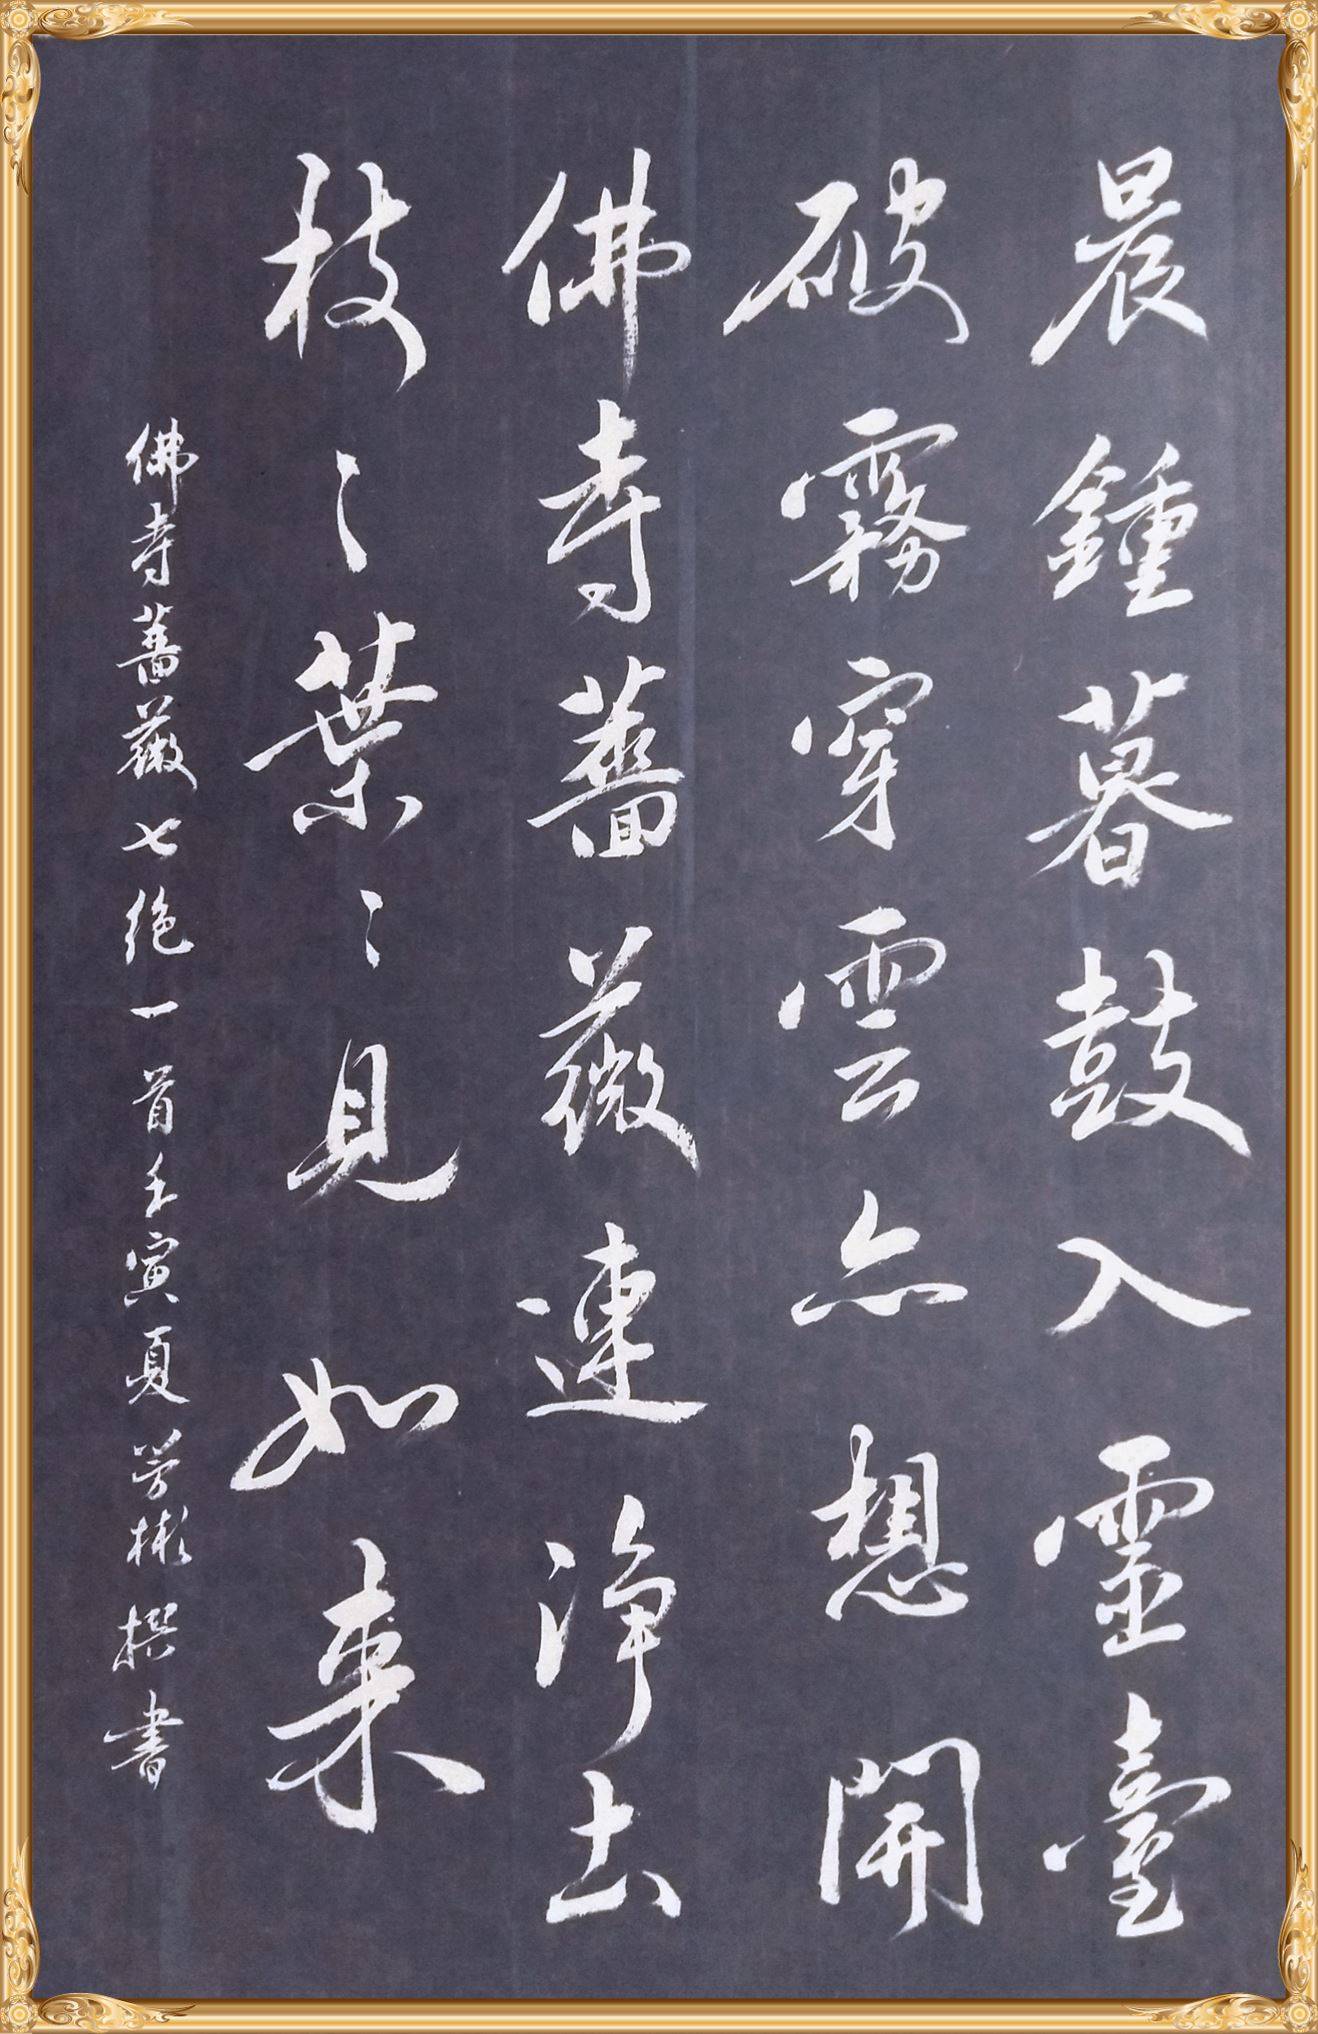 晨鍾暮鼓入靈臺
破霧穿雲亦想開
佛寺薔薇連淨土
枝〻葉〻見如来
佛寺薔薇七绝一首壬寅夏芳彬撰書